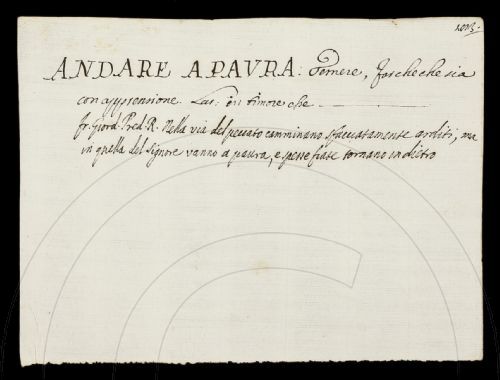 1013.
ANDARE A PAVRA: Temere, far che che sia
con apprensione. Lat: in timore
fr. Giord. Pred. R. Nella via del peccato camminano sfacciatamente arditi, ma
in quella del Signore vanno a paura, e spesse fiate tornano indietro